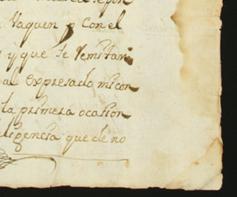 Vaquen y Con el
y que se Remitan
al expresado mi con
la primera ocasion
diligencia que de no